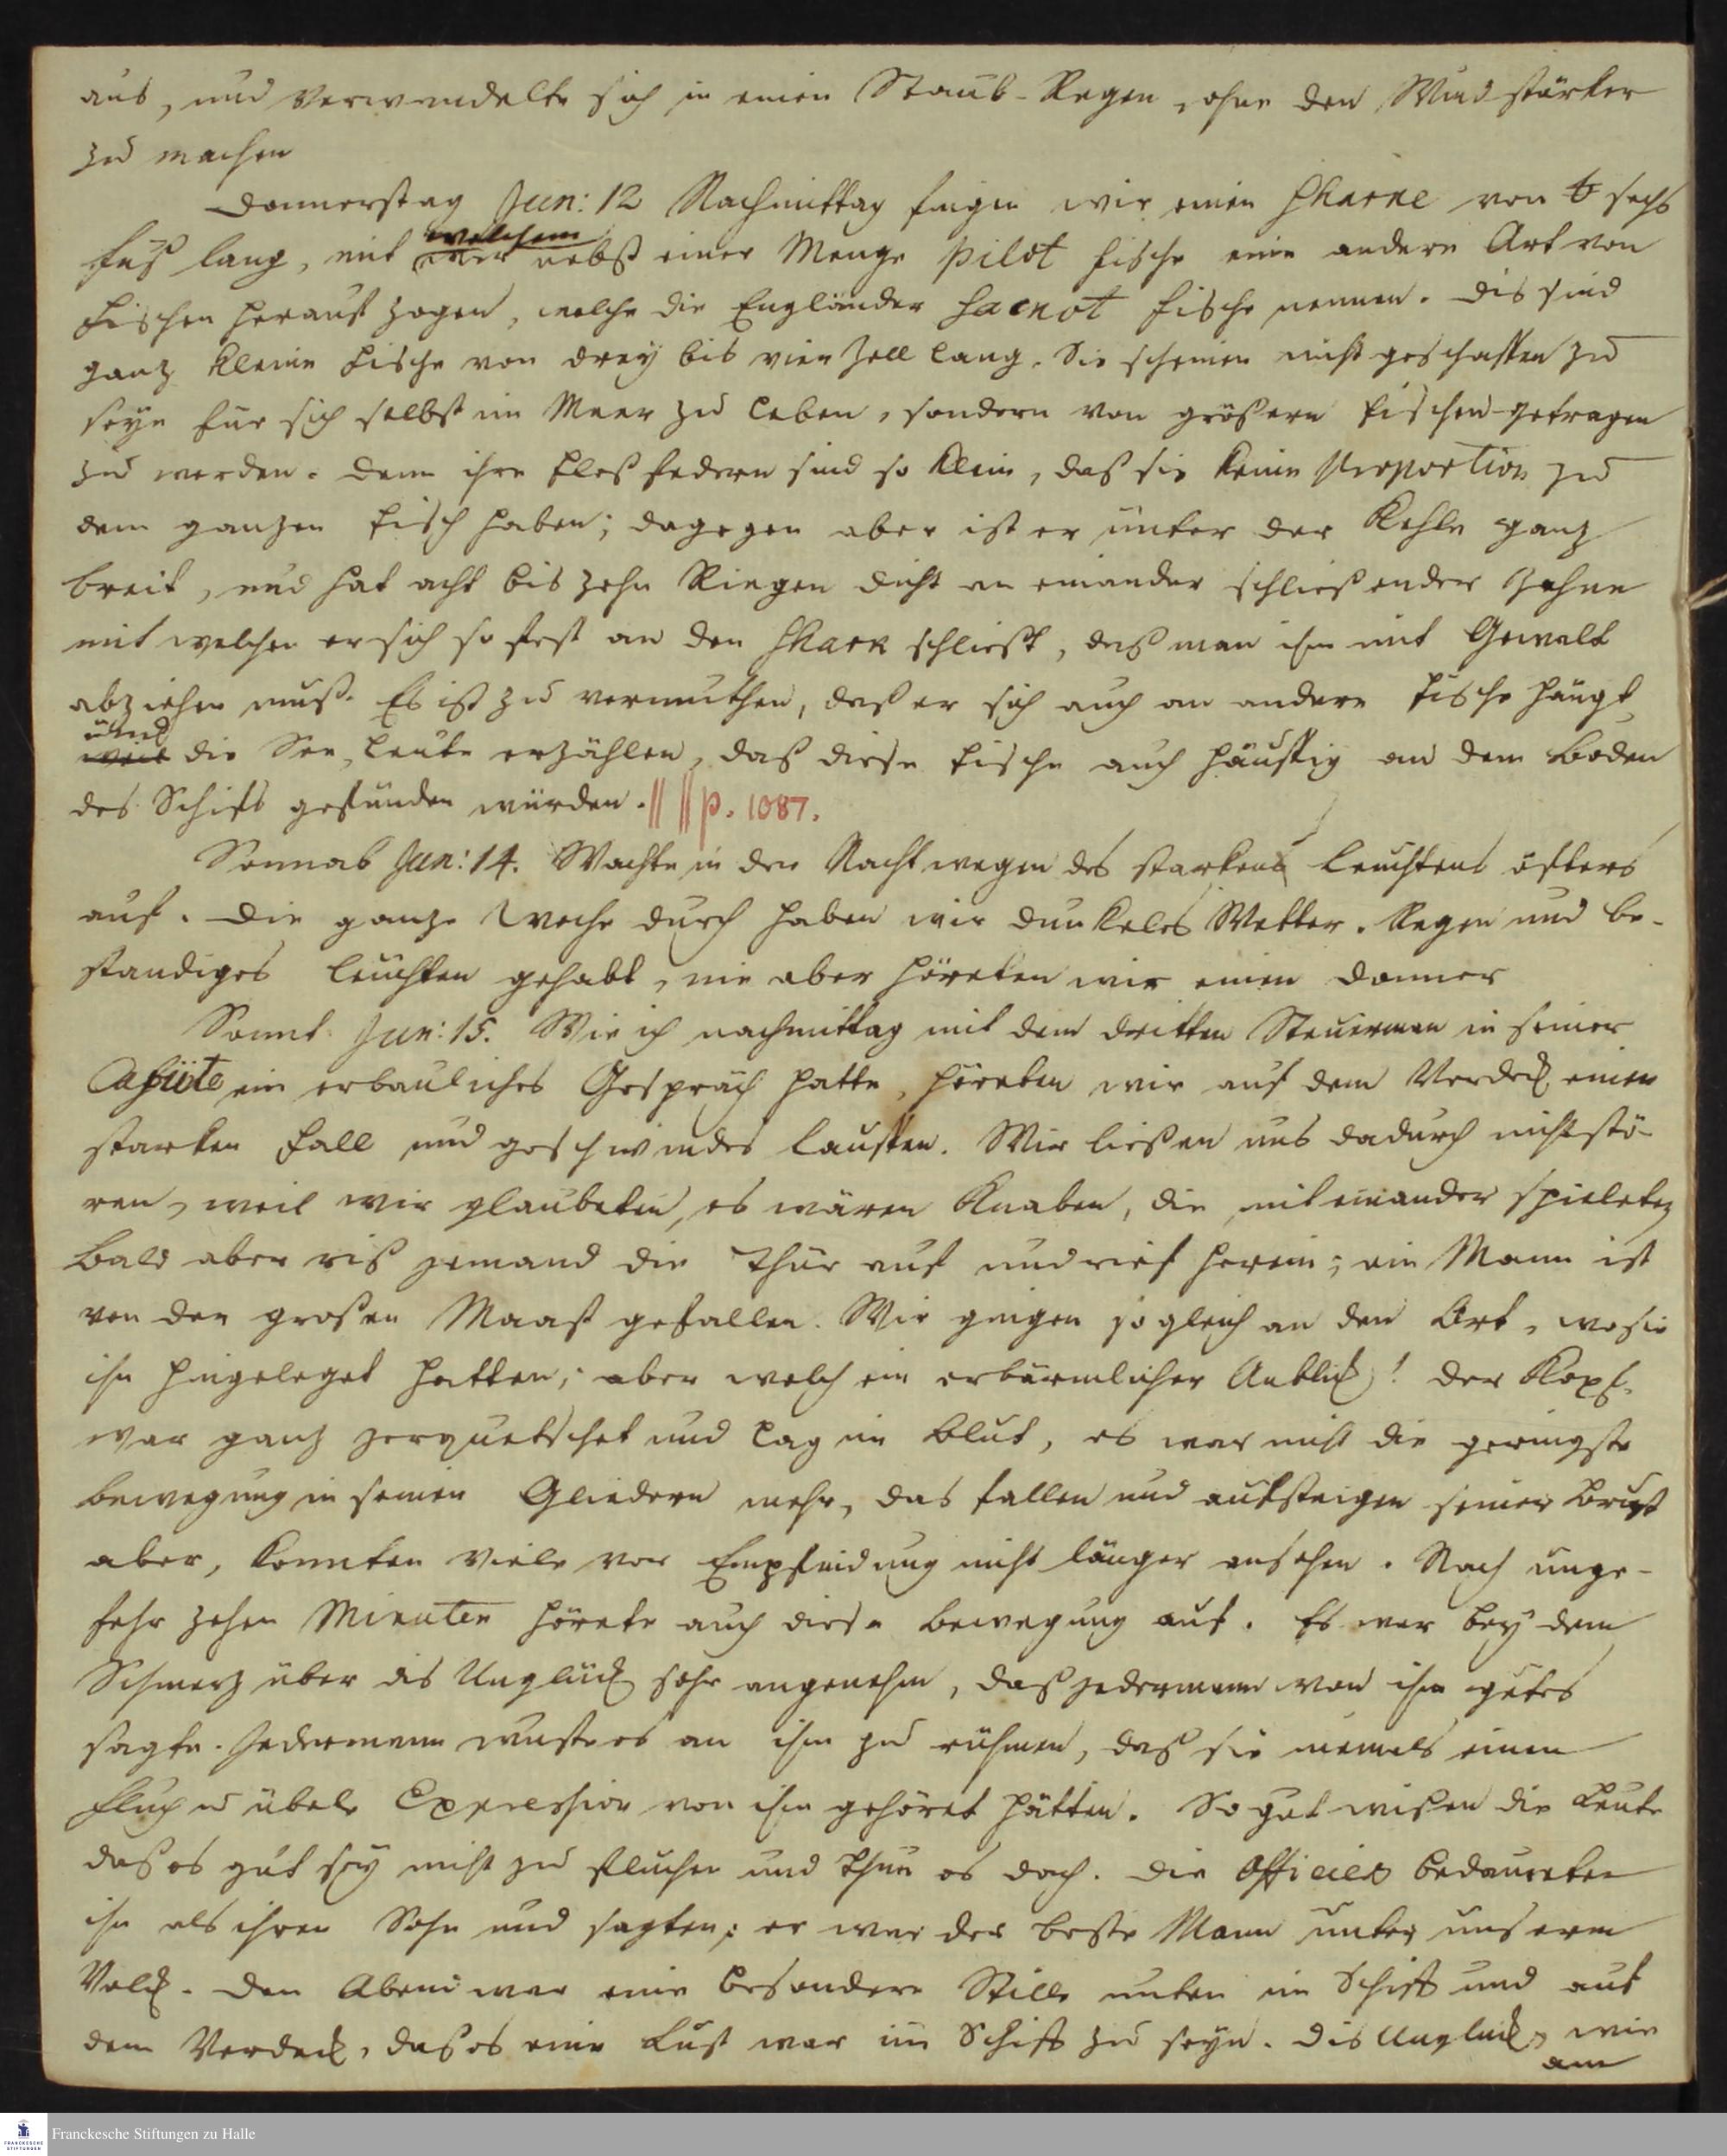 aus, und verwandelte sich in einen Staub-Regen, ohne den Wind stärker
zu machen
Donnerstag Jun: 12 Nachmittag fingen wir einen Sharke von 6 sechs
Fuß lang, mit welchem wir nebst einer Menge Pilot fische eine andere Art von
Fischen herauf zogen, welche die Engländer fische nennen. Dis sind
ganz kleine Fische von drey bis vier Zoll lang. Sie scheinen nicht geschaffen zu
seyn für sich selbst im Meer zu leben, sondern von größern Fischen getragen
zu werden. Denn ihre Floßfedern sind so klein, daß sie keine Proportion zu
dem ganzen Fisch haben; dagegen aber ist er unter der Kehle ganz
breit, und hat acht bis zehn Riegen dicht an einander schließender Zähne
mit welchen er sich so fest an den Shark schließt, daß man ihn mit Gewalt
abziehen muß. Es ist zu vermuthen, daß er sich auch an andere Fische hängt
und
weil die See-Leute erzählen, daß diese Fische auch häuffig an dem Boden
des Schifs gefunden würden. || || p. 1087.
Sonnab Jun: 14. Wachte in der Nacht wegen des starken Leuchtens öfters
auf. Die ganze Woche durch haben wir dunkeles Wetter. Regen und be-
standiges Leuchten gehabt, nie aber höreten wir einen Donner
Sonnt. Jun: 15. Wie ich nachmittag mit dem dritten Steuerman in seiner
Cajüte ein erbauliches Gespräch hatte, höreten wir auf dem Verdeck einen
starken Fall und geschwindes Lauffen. Wir ließen uns dadurch nicht stö-
ren, weil wir glaubeten, es wären Knaben, die mit einander spieleten
Bald aber riß jemand die Thür auf und rief herein; ein Mann ist
von der großen Maast gefallen. Wir gingen so gleich an den Ort, wo sie
ihn hingeleget hatten; aber welch ein erbärmlicher Anblick! Der Kopf
war ganz zerquetschet und lag im Blut, es war nicht die geringste
Bewegung in seinen Gliedern mehr, das fallen und aufsteigen seiner Brust
aber, konnten viele vor Empfindung nicht länger ansehen. Nach unge-
fehr zehen Minuten hörete auch diese Bewegung auf. Es war bey dem
Schmerz über dis Unglück sehr angenehm, daß jedermann von ihm gutes
sagte. Jedermann wuste es an ihm zu rühmen, daß sie niemals einen
Fluch u übele Expression von ihm gehöret hätten. So gut wißen die Leute
daß es gut sey nicht zu fluchen und thun es doch. Die Officiers bedaureten
ihn als ihren Sohn und sagten; er war der beste Mann unter unserm
Volck. Den Abend war eine besondere Stille unten im Schiff und auf
dem Verdeck, daß es eine Lust war im Schiff zu seyn. Dis Unglück, wie
am
Franckesche Stiftungen zu Halle